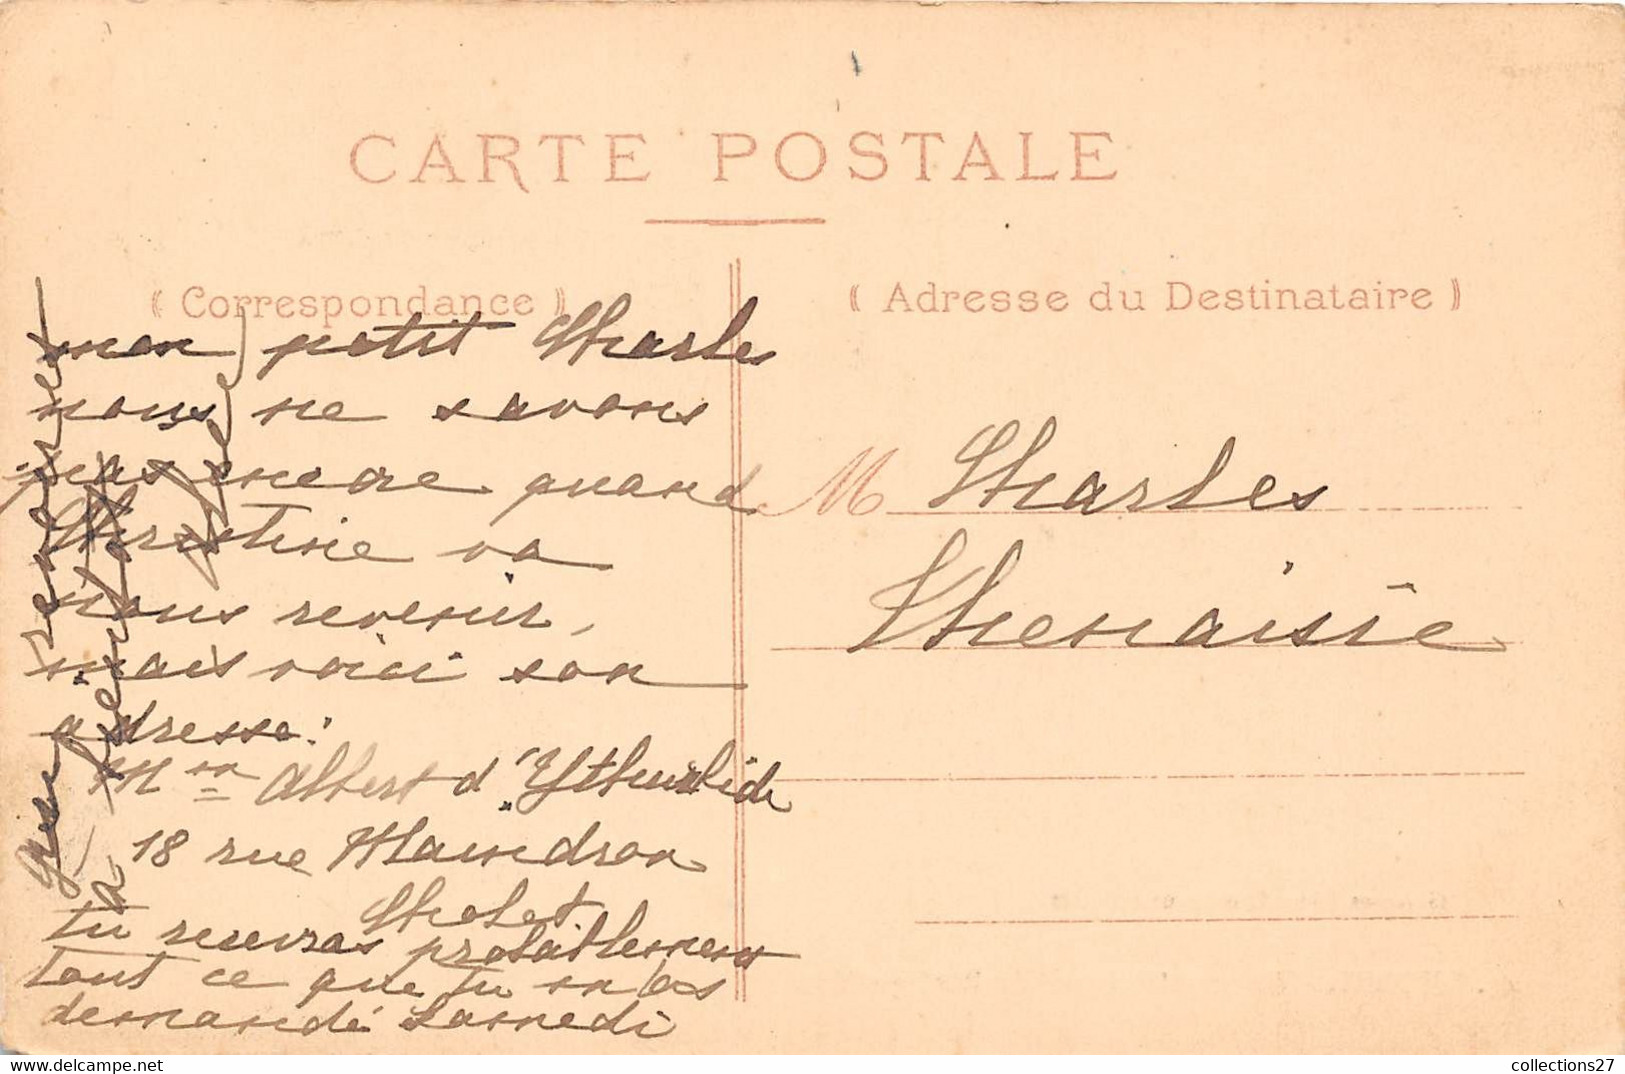 CARTE POSTALE
( Correspondance )
( Adresse du Destinataire )
mon petit Charles
nous ne savons
pas encore quand
Christine va
nous revenir,
mais voici son
adresse:
Mon Albert d'Ythurbide
18 rue Maindron
Cholet
tu recevras probablement
tout ce que tu m'as
demandé samedi
M Charles
Chenaisie
collections27